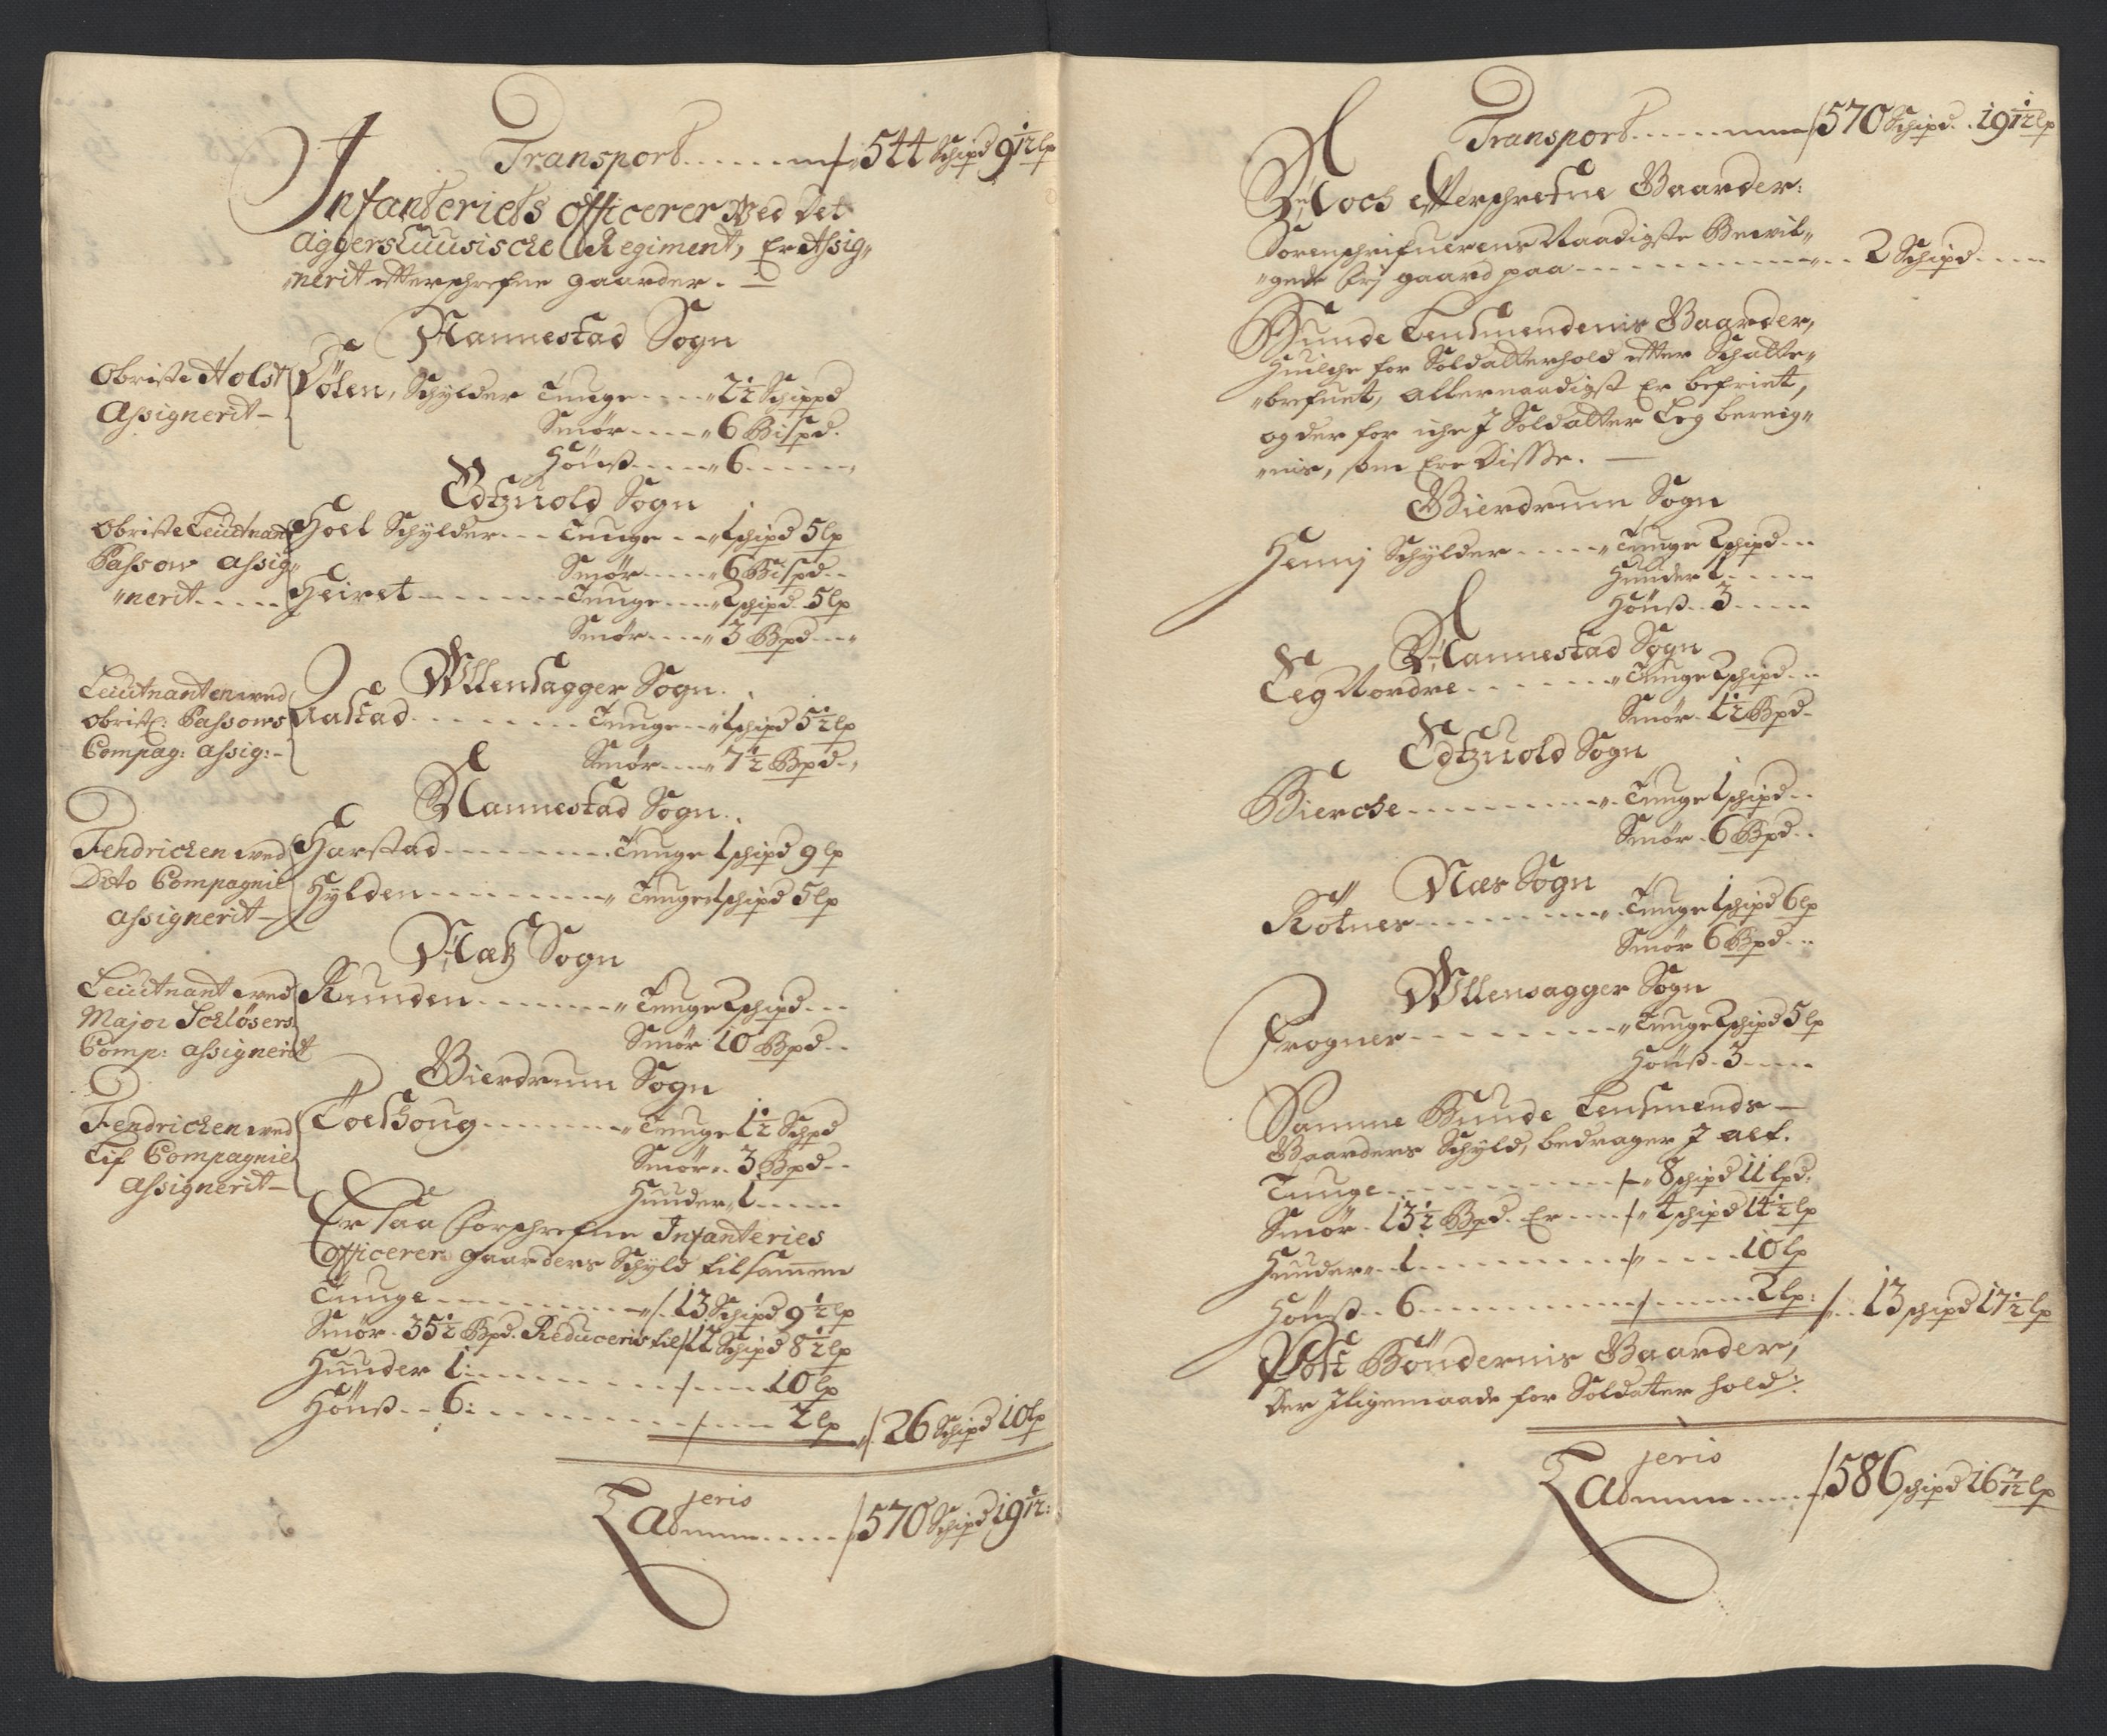 Transport ...... 544 Schipd 9 1/12 lp
Infanteriets Officerer Ved Det
Aggershuusische Regiment, Er Assig„
„nerit effterschrefne gaarder.
Nannestad Sogn
Obriste Holst
Assignerit —
Løken, Schylder Tunge .... 2½ Schippd
Smør .... 6 Bispd.
Hønß .... 6 ....
Edtzuold Sogn
Obriste Leiutnant
Passow Assig„
„nerit ....
Hoel Schylder ... Tunge ... 1 schipd 5 lp
Smør .... 6 Bispd..
Heiret ....... Tunge .... 2 schipd 5 lp
Smør .... 3 Bpd ...
Ullensagger Sogn.
Leiutnanten wed
Obrist: Passows
Compag: Assig: –
....... Tunge ... 1 schipd 5½ lp
Smør .... 7½ Bpd.
Nannestad Sogn.
Fendrichen wed
Dito Compagnie
Assignerit —
Harstad ........ Tunge 1 schipd 9 lp
Hylden ........ Tunge 1 schipd 5 lp
Næß Sogn
Leiutnant wed
Major Schløsers
Comp: Assignerit
Runden ....... Tunge 2 schipd ...
Smør 10 Bpd ..
Bierdrum Sogn
Fendrichen wed
Lif Compagnie
Assignerit —
Loeshoug ....... Tunge 1½ Schpd
Smør .. 3 Bpd ..
Huuder 1 ....
Er saa forschrefne Infanteries
Officerer gaarders Schyld tilsammen
Tunge ........ 13 Schipd 9½ lp
Smør - 35½ Bpd. Reduceris til 12 Schipd 8½ lp
Huuder 1: ........ 10 lp
Hønß .. 6: ........ 2 lp 26 Schipd 10 lp
Lateris
..... 570 Schipd 19 1/12:
Transport ....... 570 Schipd. 19 1/12 lp
Noch effterschrefne Gaarder:
Sorenschrifuerens Naadigste Bewil„
„gede frj gaard paa .......... 2 Schipd ....
Bunde Lensmendenis Gaarder,
Huilche for Soldatterhold effter Schatte„
„brefuet, allernaadigst Er befriet,
og der for iche J Soldatter Leg bereig„
„nis, som Ere Disse. —
Bierdrum Sogn
Hemj Schylder ..... Tunge 2 schipd ...
Huuder 1 ....
Hønß .. 3 ....
Nannestad Sogn
Leg Nordre ...... Tunge 2 schipd ...
Smør - 1½ Bpd -
Edtzuold Sogn
Bierche ........ Tunge 1 schipd ..
Smør . 6 Bpd ..
Næs Sogn
Rötnes ........ Tunge 1 schipd 6 lp
Smør 6 Bpd ...
Ullensagger Sogn
Frogner ........ Tunge 2 schipd 5 lp
Hønß . 3 ....
Samme Bunde Lensmends —
Gaarders Schyld, bedrager J alt.
Tunge ......... 8 schipd 11 lpd:
Smør - 13½ Bpd. Er .... 4 schipd 14½ lp
Huuder .. 1 ........ 10 lp
Hønß .. 6 ........ 2 lp: 13 schipd 17½ lp
Post Böndernis Gaarder,
Der Jligemaade for Soldater hold:
Lateris
..... 586 schipd 16 7/12 lp